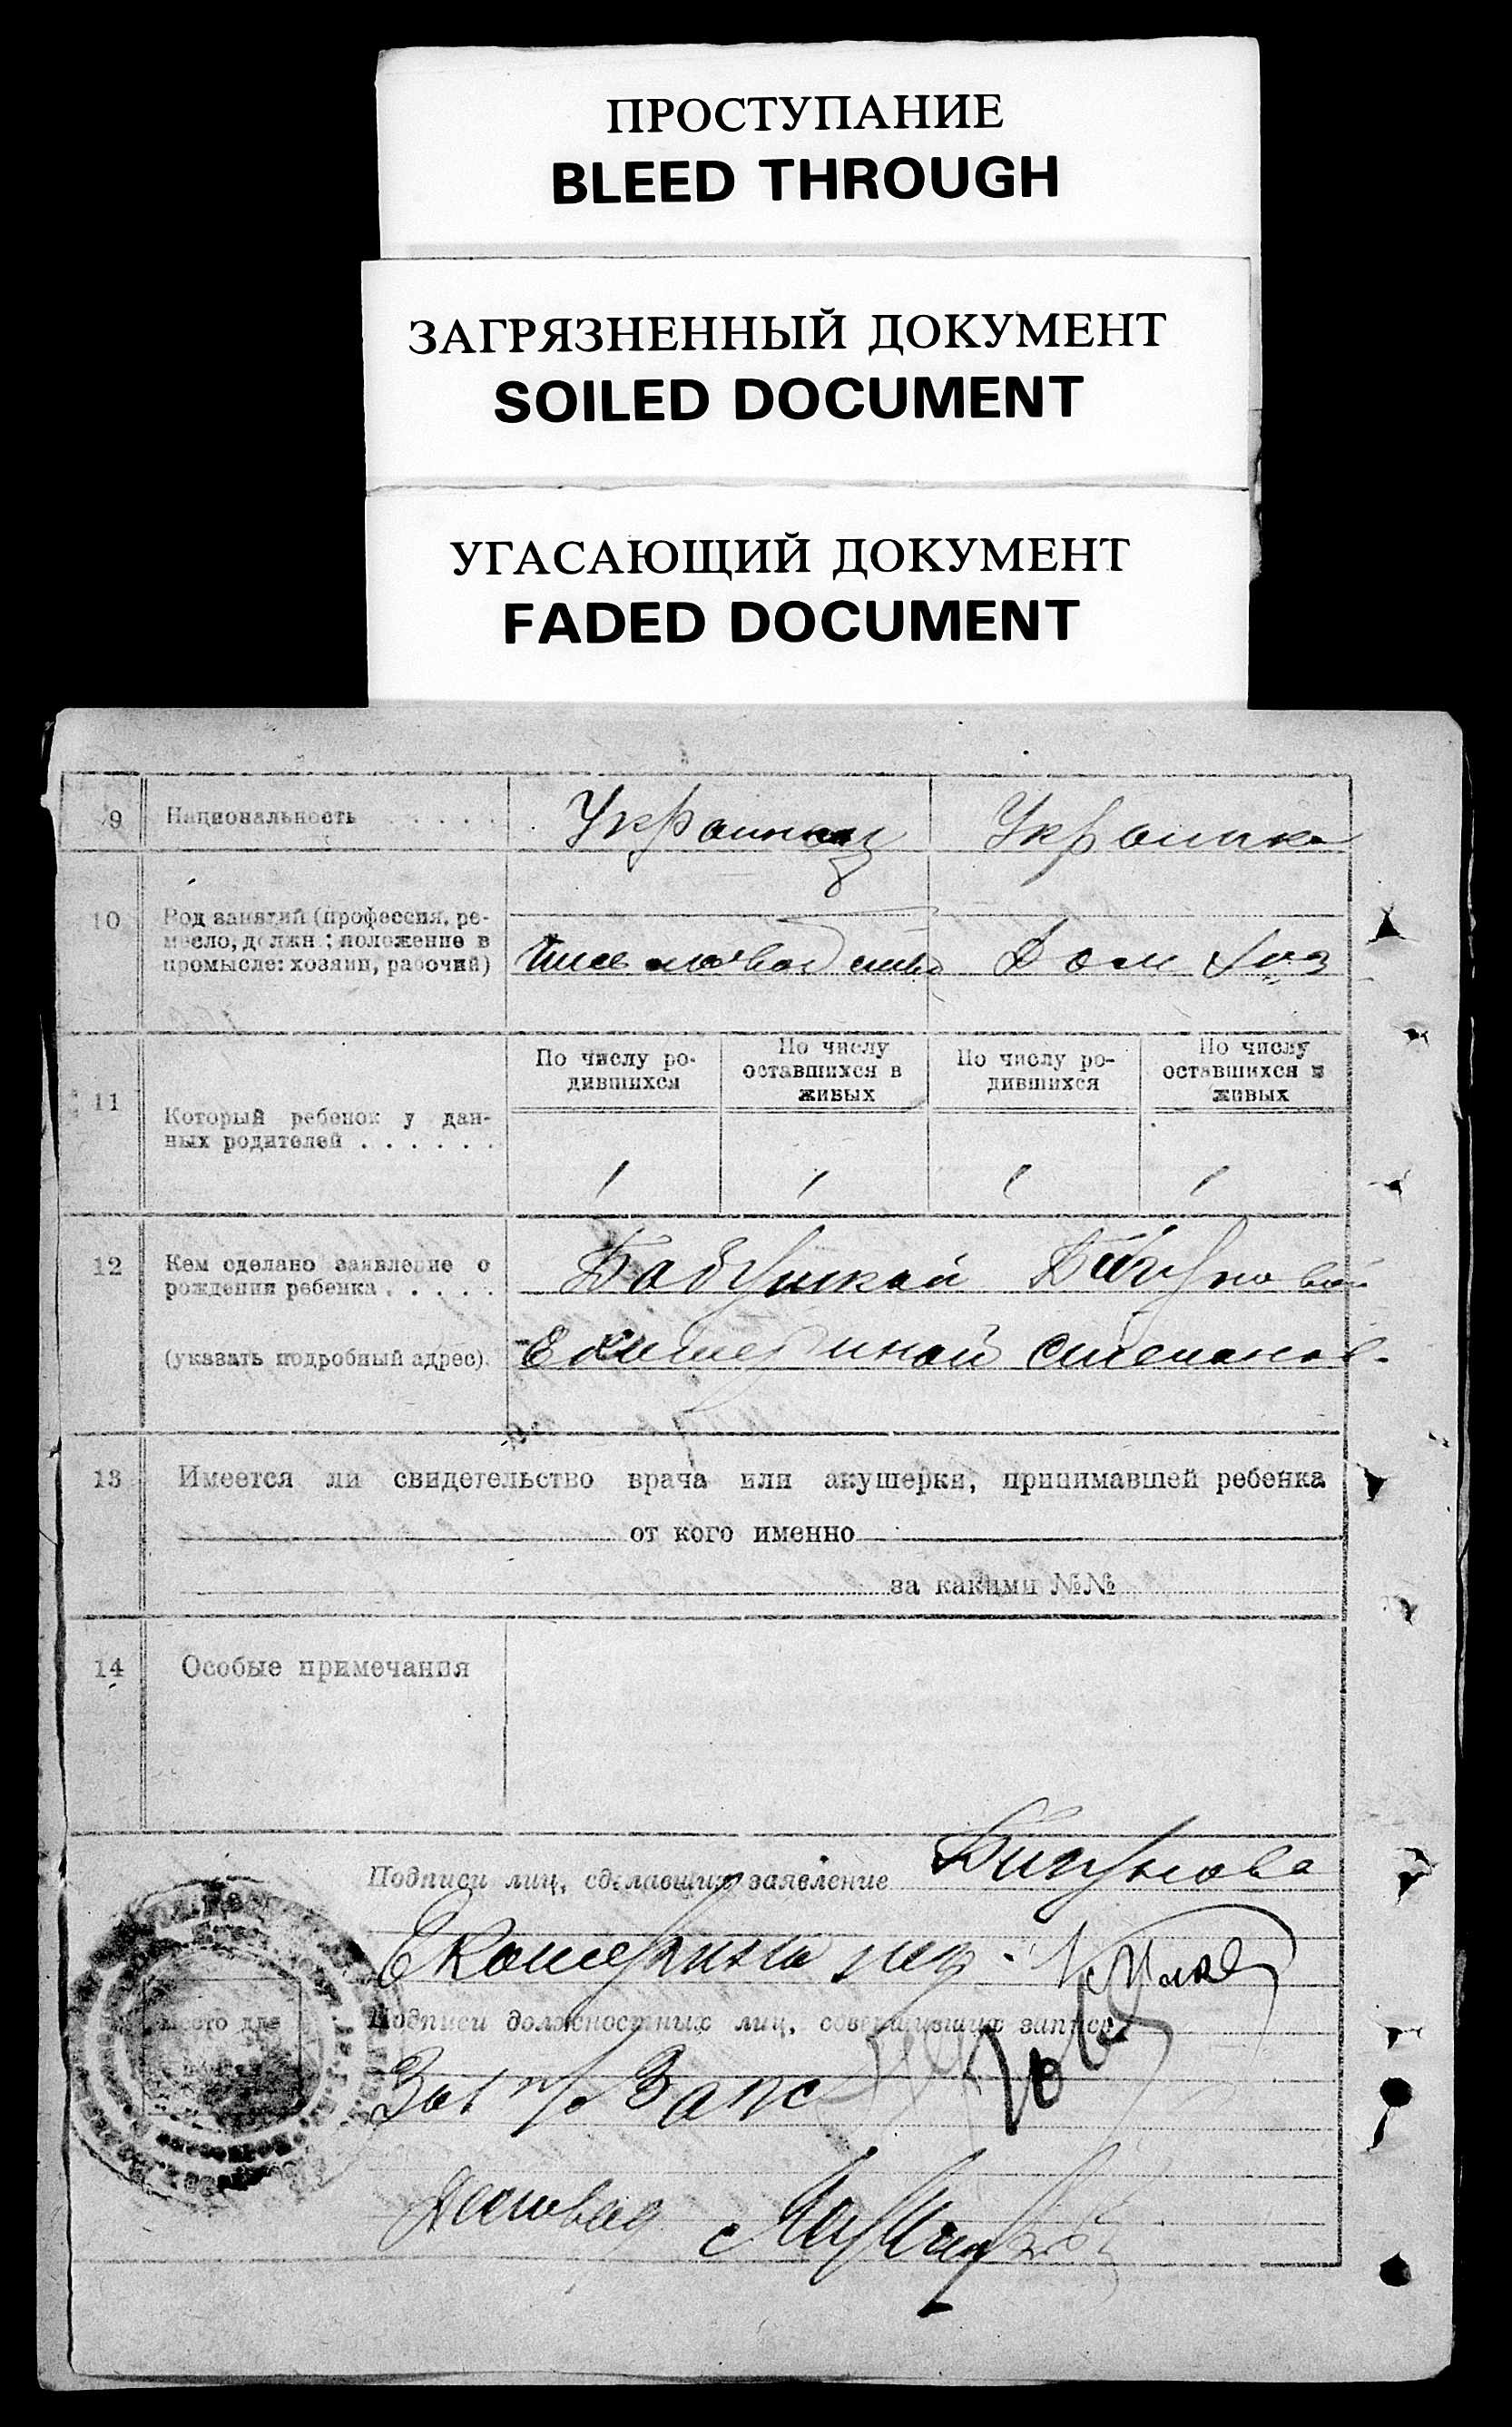 ПРОСТУПАНИЕ
BLEED THROUGH
ЗАГРЯЗНЕННЫЙ ДОКУМЕНТ
SOILED DOCUMENT
УГАСАЮЩИЙ ДОКУМЕНТ
FADED DOCUMENT
9 Национальность . . . . . Украинец Украинка
10 Род занятий (профессия, ре-
месло, должн.; положение в
промысле: хозяин, рабочий) Дом Хоз
По числу ро- По числу По числу ро- По числу
дившихся оставшихся в дившихся оставшихся в
живых живых
11 Который ребенок у дан-
ных родителей . . . . . . 1 1 1 1
12 Кем сделано заявление о
рождении ребенка . . . . . Бабушкой
(указать подробный адрес). Екатериной Степанов.
13 Имеется ли свидетельство врача или акушерки, принимавшей ребенка
от кого именно
за какими №№
14 Особые примечания
Подписи лиц, сделавших заявление
Екатерина
Место для
Подписи должностных лиц, совершивших запись
Зав Загс
Деловод